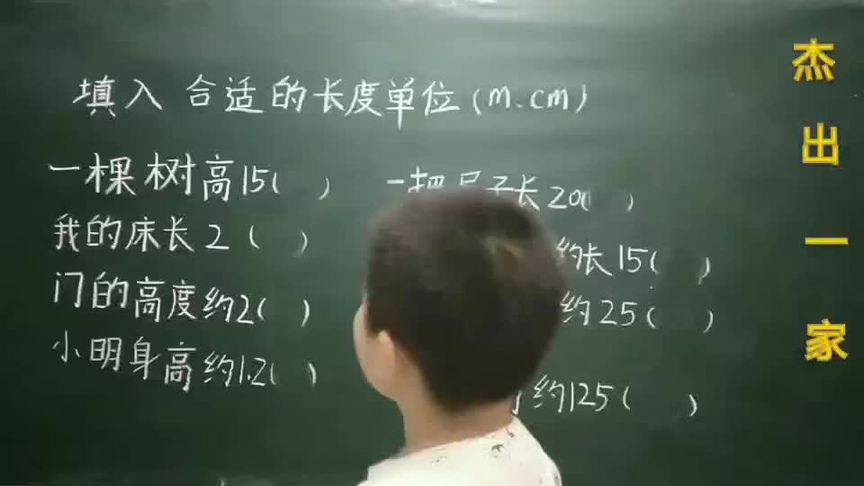 填入 合适的长度单位(m.cm)
一棵树高15( )
我的床长2( )
门的高度约2( )
小明身高约1.2( )
一把尺子长20( )
约长15( )
约25( )
约125( )
杰出一家